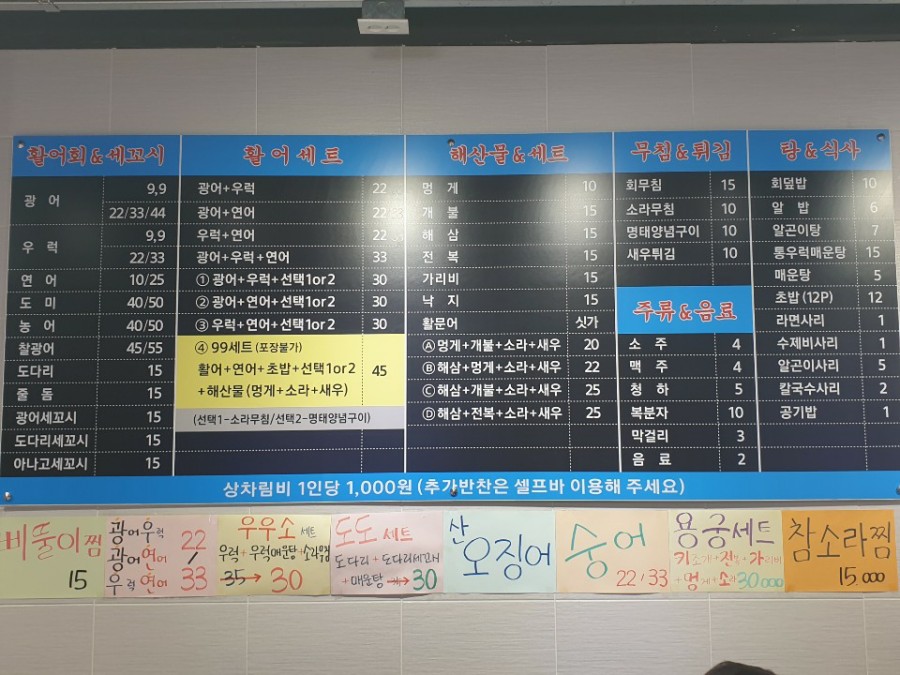 활어회&세꼬시
광 어 9,9
22/33/44
우 럭 9,9
22/33
연 어 10/25
도 미 40/50
농 어 40/50
찰광어 45/55
도다리 15
줄 돔 15
광어세꼬시 15
도다리세꼬시 15
아나고세꼬시 15
활어세트
광어+우럭 22
광어+연어 22
우럭+연어 22
광어+우럭+연어 33
①광어+우럭+선택1or2 30
②광어+연어+선택1or2 30
③우럭+연어+선택1or2 30
④ 99세트(포장불가)
활어+연어+초밥+선택1or2 45
+해산물(멍게+소라+새우)
(선택1-소라무침/선택2-명태양념구이)
해산물&세트
멍 게 10
개 불 15
해 삼 15
전 복 15
가리비 15
낙 지 15
활문어 싯가
Ⓐ멍게+개불+소라+새우 20
Ⓑ해삼+멍게+소라+새우 22
Ⓒ해삼+개불+소라+새우 25
Ⓓ해삼+전복+소라+새우 25
무침&튀김
회무침 15
소라무침 10
명태양념구이 10
새우튀김 10
주류&음료
소 주 4
맥 주 4
청 하 5
복분자 10
막걸리 3
음 료 2
탕&식사
회덮밥 10
알 밥 6
알곤이탕 7
통우럭매운탕 15
매운탕 5
초밥(12P) 12
라면사리 1
수제비사리 1
알곤이사리 5
칼국수사리 2
공기밥 1
상차림비 1인당 1,000원 (추가반찬은 셀프바 이용해 주세요)
삐뚤이찜
15
광어우럭 22
광어연어 /
우럭연어 33
우우소 세트
우럭+우럭매운탕+소라무침
35→30
도도세트
도다리+도다리세꼬시
+매운탕 → 30
산
오징어
숭어
22/33
용궁세트
키조개+전복+가리비
+멍게+소라 30,000
참소라찜
15,000